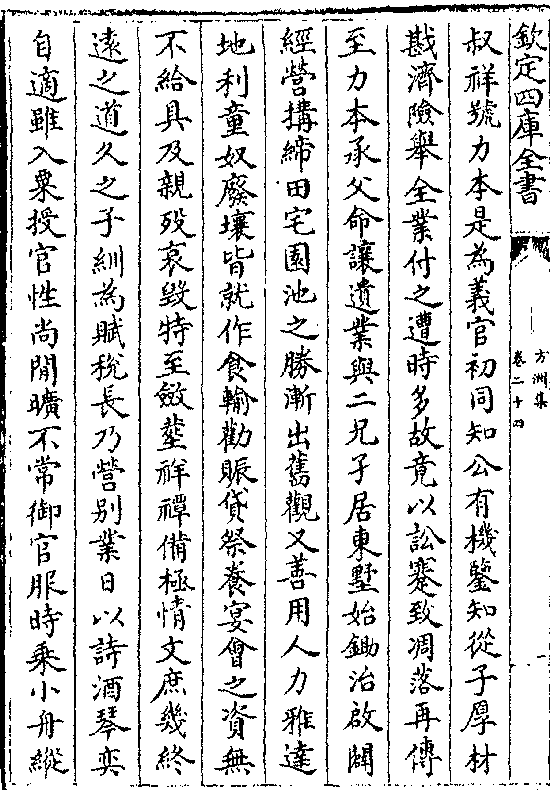 欽定四庫全書
方洲集
卷二十四
叔祥號力本是為義官初同知公有機鑒知從子厚材
戡濟險舉全業付之遭時多故竟以訟蹇致凋落再傳
至力本承父命讓遺業與二兄子居東墅始鋤治啟闢
經營搆締田宅園池之勝漸出舊觀又善用人力雅達
地利童奴廢壤皆就作食輸勸賑貸祭養宴會之資無
不給具及親歿哀毀特至斂塟祥禫備極情文庶幾終
遠之道久之子紃為賦稅長乃營别業日以詩酒琴奕
自適雖入粟授官性尚閒曠不常御官服時乘小舟縱